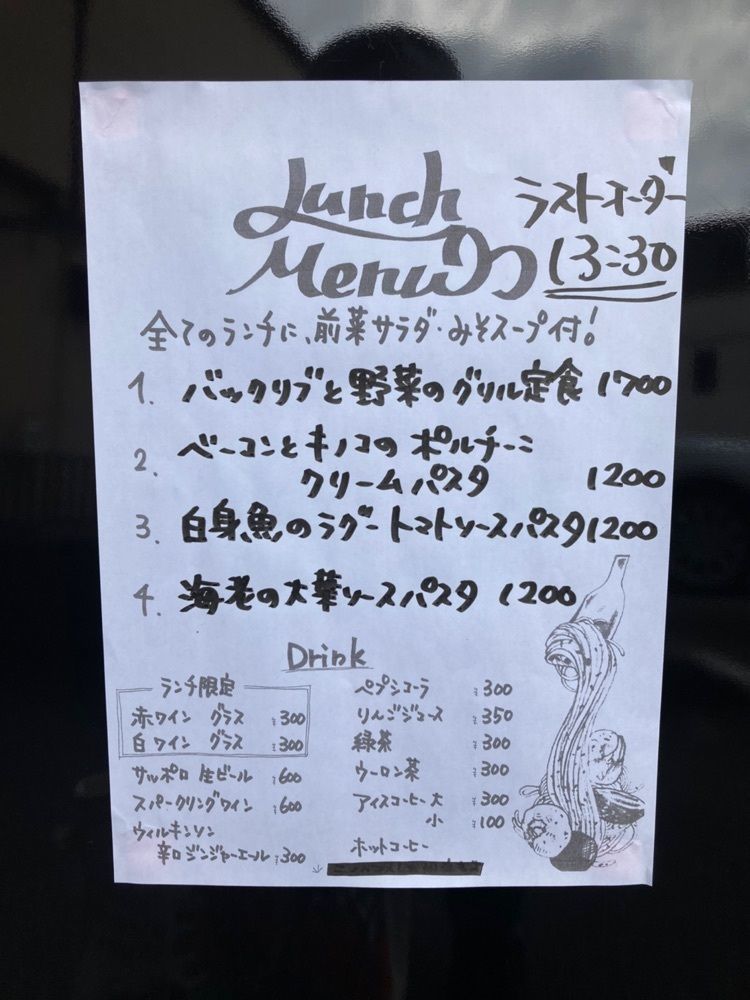 Lunch
Menu
ラストオーダー
13:30
全てのランチに、前菜サラダ・みそスープ付!
1. バックリブと野菜のグリル定食 1700
2. ベーコンとキノコのポルチーニ
クリームパスタ 1200
3. 白身魚のラグートマトソースパスタ 1200
4. 海老の大葉ソースパスタ 1200
Drink
ランチ限定
赤ワイン グラス ¥300
白ワイン グラス ¥300
サッポロ 生ビール ¥600
スパークリングワイン ¥600
ウィルキンソン
辛口ジンジャーエール ¥300
ペプシコーラ ¥300
りんごジュース ¥350
緑茶 ¥300
ウーロン茶 ¥300
アイスコーヒー 大 ¥300
小 ¥100
ホットコーヒー